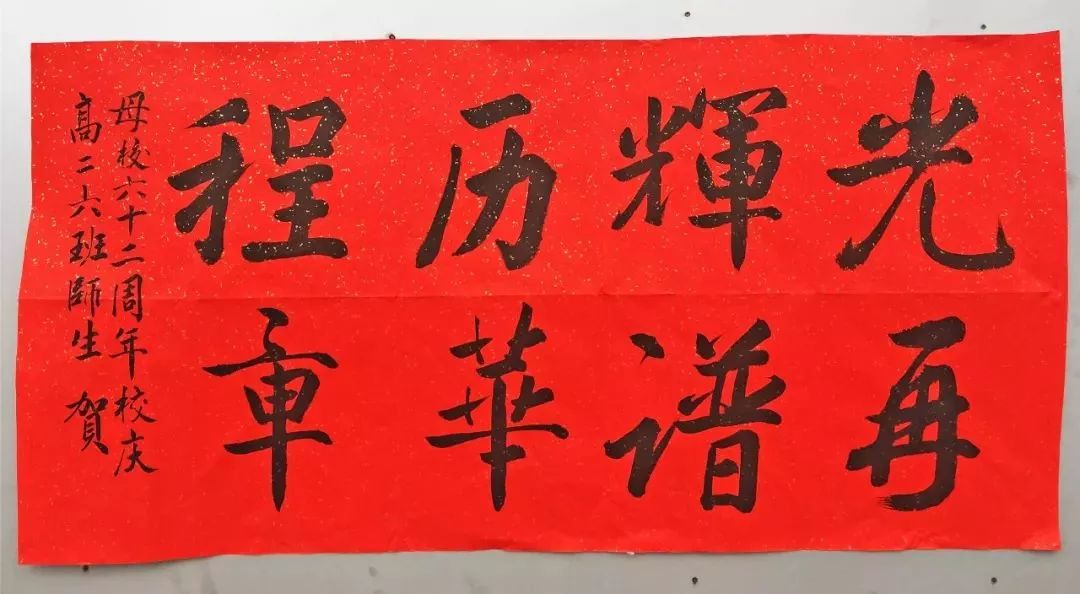 光輝历程
再谱華章
母校六十二周年校庆
高二六班師生 賀